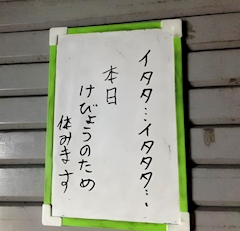 イタタ…イタタタ…、
本日
けびょうのため
休みます